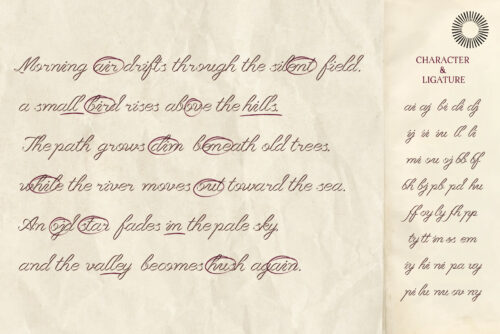 Morning air drifts through the silent field,
a small bird rises above the hills.
The path grows dim beneath old trees,
while the river moves out toward the sea.
An ojd star fades in the pale sky,
and the valley becomes hush again.
CHARACTER
&
LIGATURE
ai aj be dj
ll li
mi ou oj bb bf
bh bj pb pd hu
ff oy ly fh pp
ty tt im ss em
iy hi ni pa uy
pi lu nu ov ny